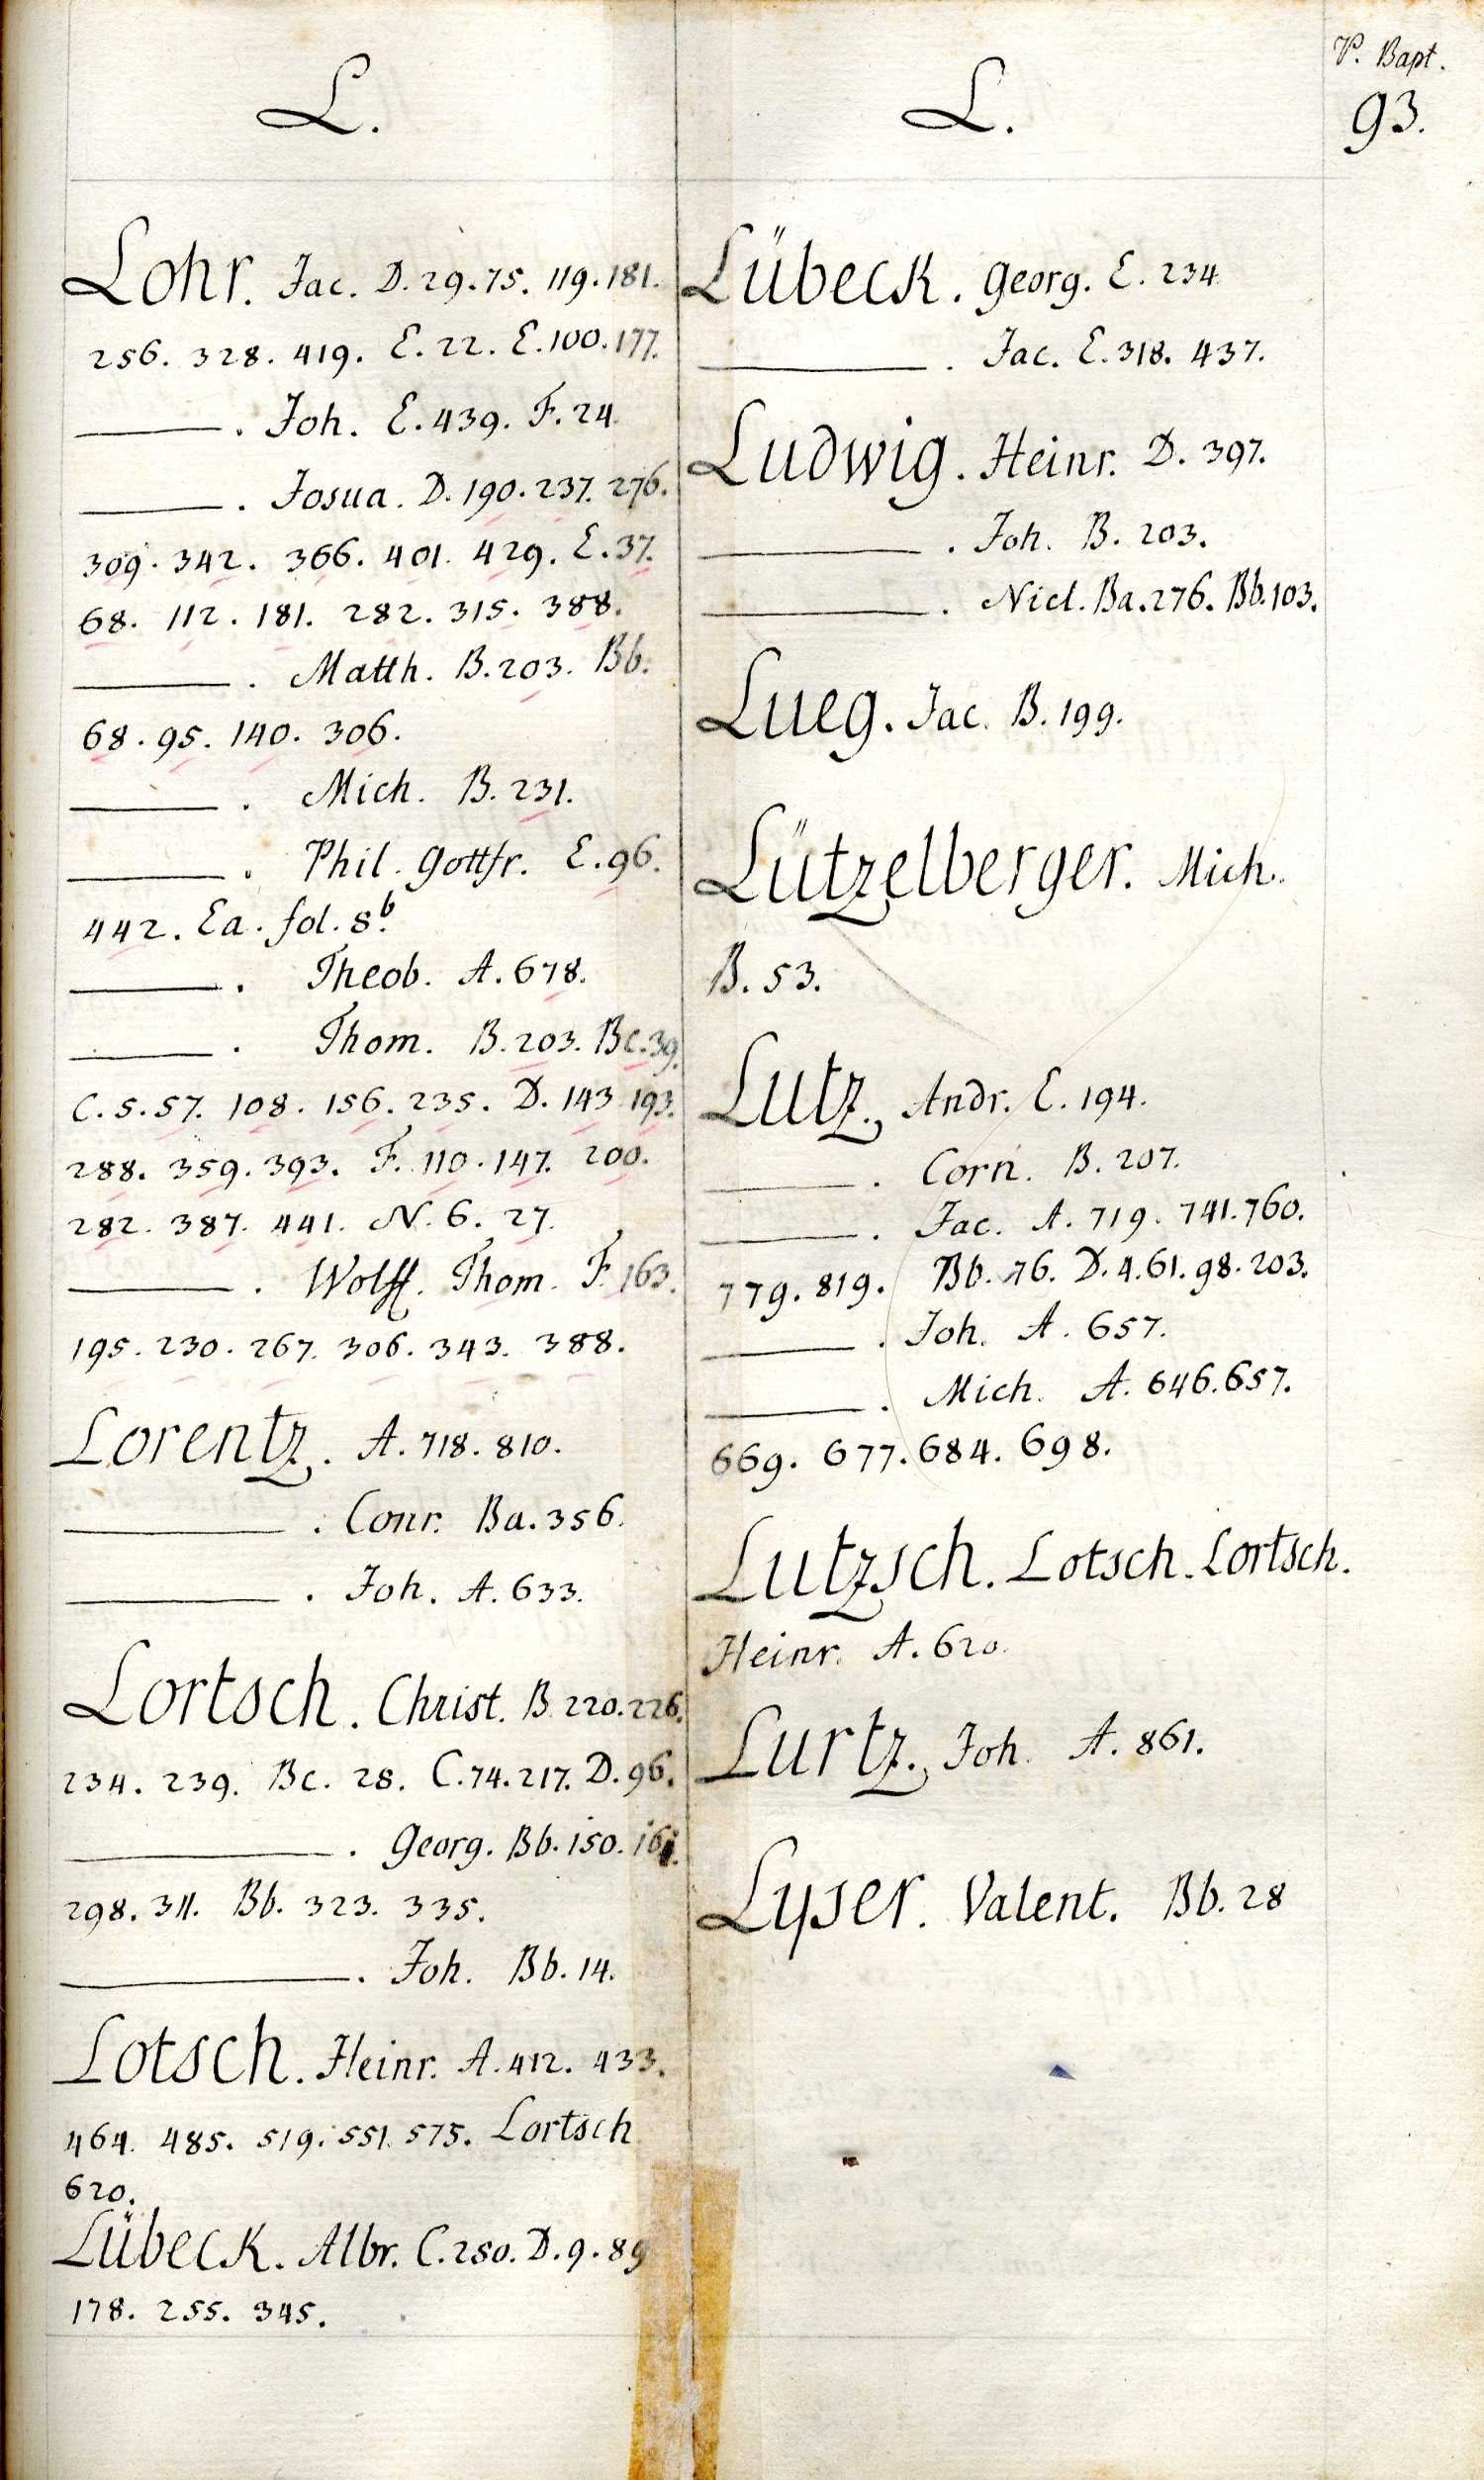 P. Bapt.
93.
L.
Lohr. Jac. D. 29. 75. 119. 181.
256. 328. 419. E. 22. E. 100. 177.
———. Joh. E. 439. F. 24.
———. Josua. D. 190. 237. 276.
309. 342. 366. 401. 429. E. 37.
68. 112. 181. 282. 315. 388.
———. Matth. B. 203. Bb.
68. 95. 140. 306.
———. Mich. B. 231.
———. Phil. Gottfr. E. 96.
442. Ea. fol. 8.b
———. Theob. A. 678.
———. Thom. B. 203. Bc. 39.
C. 5. 57. 108. 156. 235. D. 143. 193.
288. 359. 393. F. 110. 147. 200.
282. 387. 441. N. 6. 27.
———. Wolff. Thom. F. 163.
195. 230. 267. 306. 343. 388.
Lorentz. A. 718. 810.
———. Conr. Ba. 356.
———. Joh. A. 633.
Lortsch. Christ. B. 220. 226.
234. 239. Bc. 28. C. 74. 217. D. 96.
———. Georg. Bb. 150.
298. 311. Bb. 323. 335.
———. Joh. Bb. 14.
Lotsch. Heinr. A. 412. 433.
464. 485. 519. 551. 575. Lortsch
620.
Lübeck. Albr. C. 280. D. 9. 89
178. 255. 345.
L.
Lübeck. Georg. E. 234.
———. Jac. E. 318. 437.
Ludwig. Heinr. D. 397.
———. Joh. B. 203.
———. Nicl. Ba. 276. Bb. 103.
Lueg. Jac. B. 199.
Lützelberger. Mich.
B. 53.
Lutz. Andr. E. 194.
———. Corn. B. 207.
———. Jac. A. 719. 741. 760.
779. 819. Bb. 76. D. 4. 61. 98. 203.
———. Joh. A. 657.
———. Mich. A. 646. 657.
669. 677. 684. 698.
Lutzsch. Lotsch. Lortsch.
Heinr. A. 620.
Lurtz. Joh. A. 861.
Lyser. Valent. Bb. 28